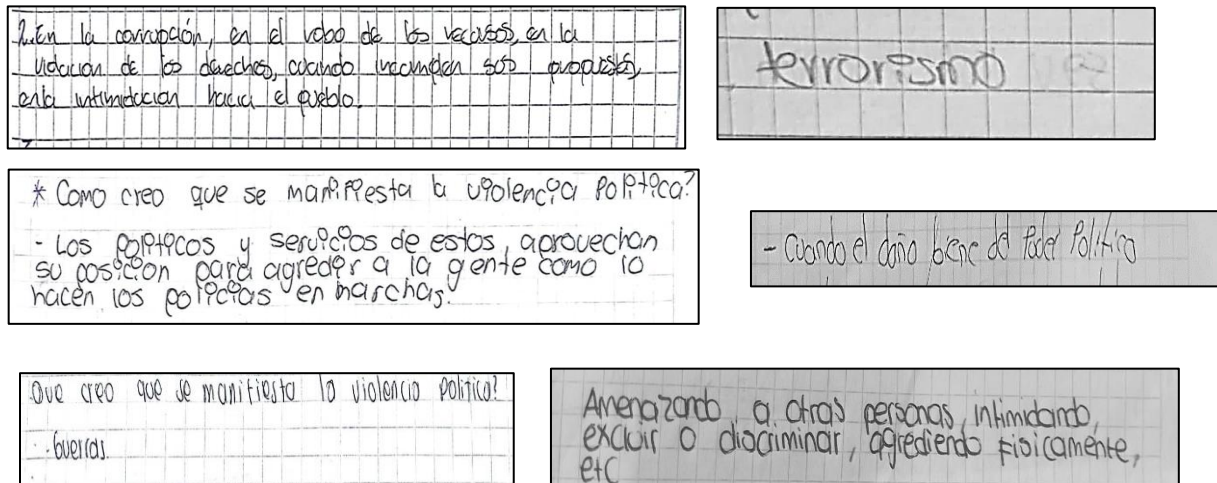 2. En la corrupción, en el robo de los recursos, en la
violacion de los derechos, cuando incumplen sus propuestas,
en la intimidacion hacia el pueblo.
terrorismo
* Como creo que se manifiesta la violencia politica?
- Los politicos y servicios de estos, aprovechan
su posicion para agredir a la gente como lo
hacen los policias en marchas.
- Cuando el daño biene del Poder Politico
Que creo que se manifiesta la violencia politica?
- Guerras
Amenazando a otras personas, intimidando,
excluir o discriminar, agrediendo fisicamente,
etc